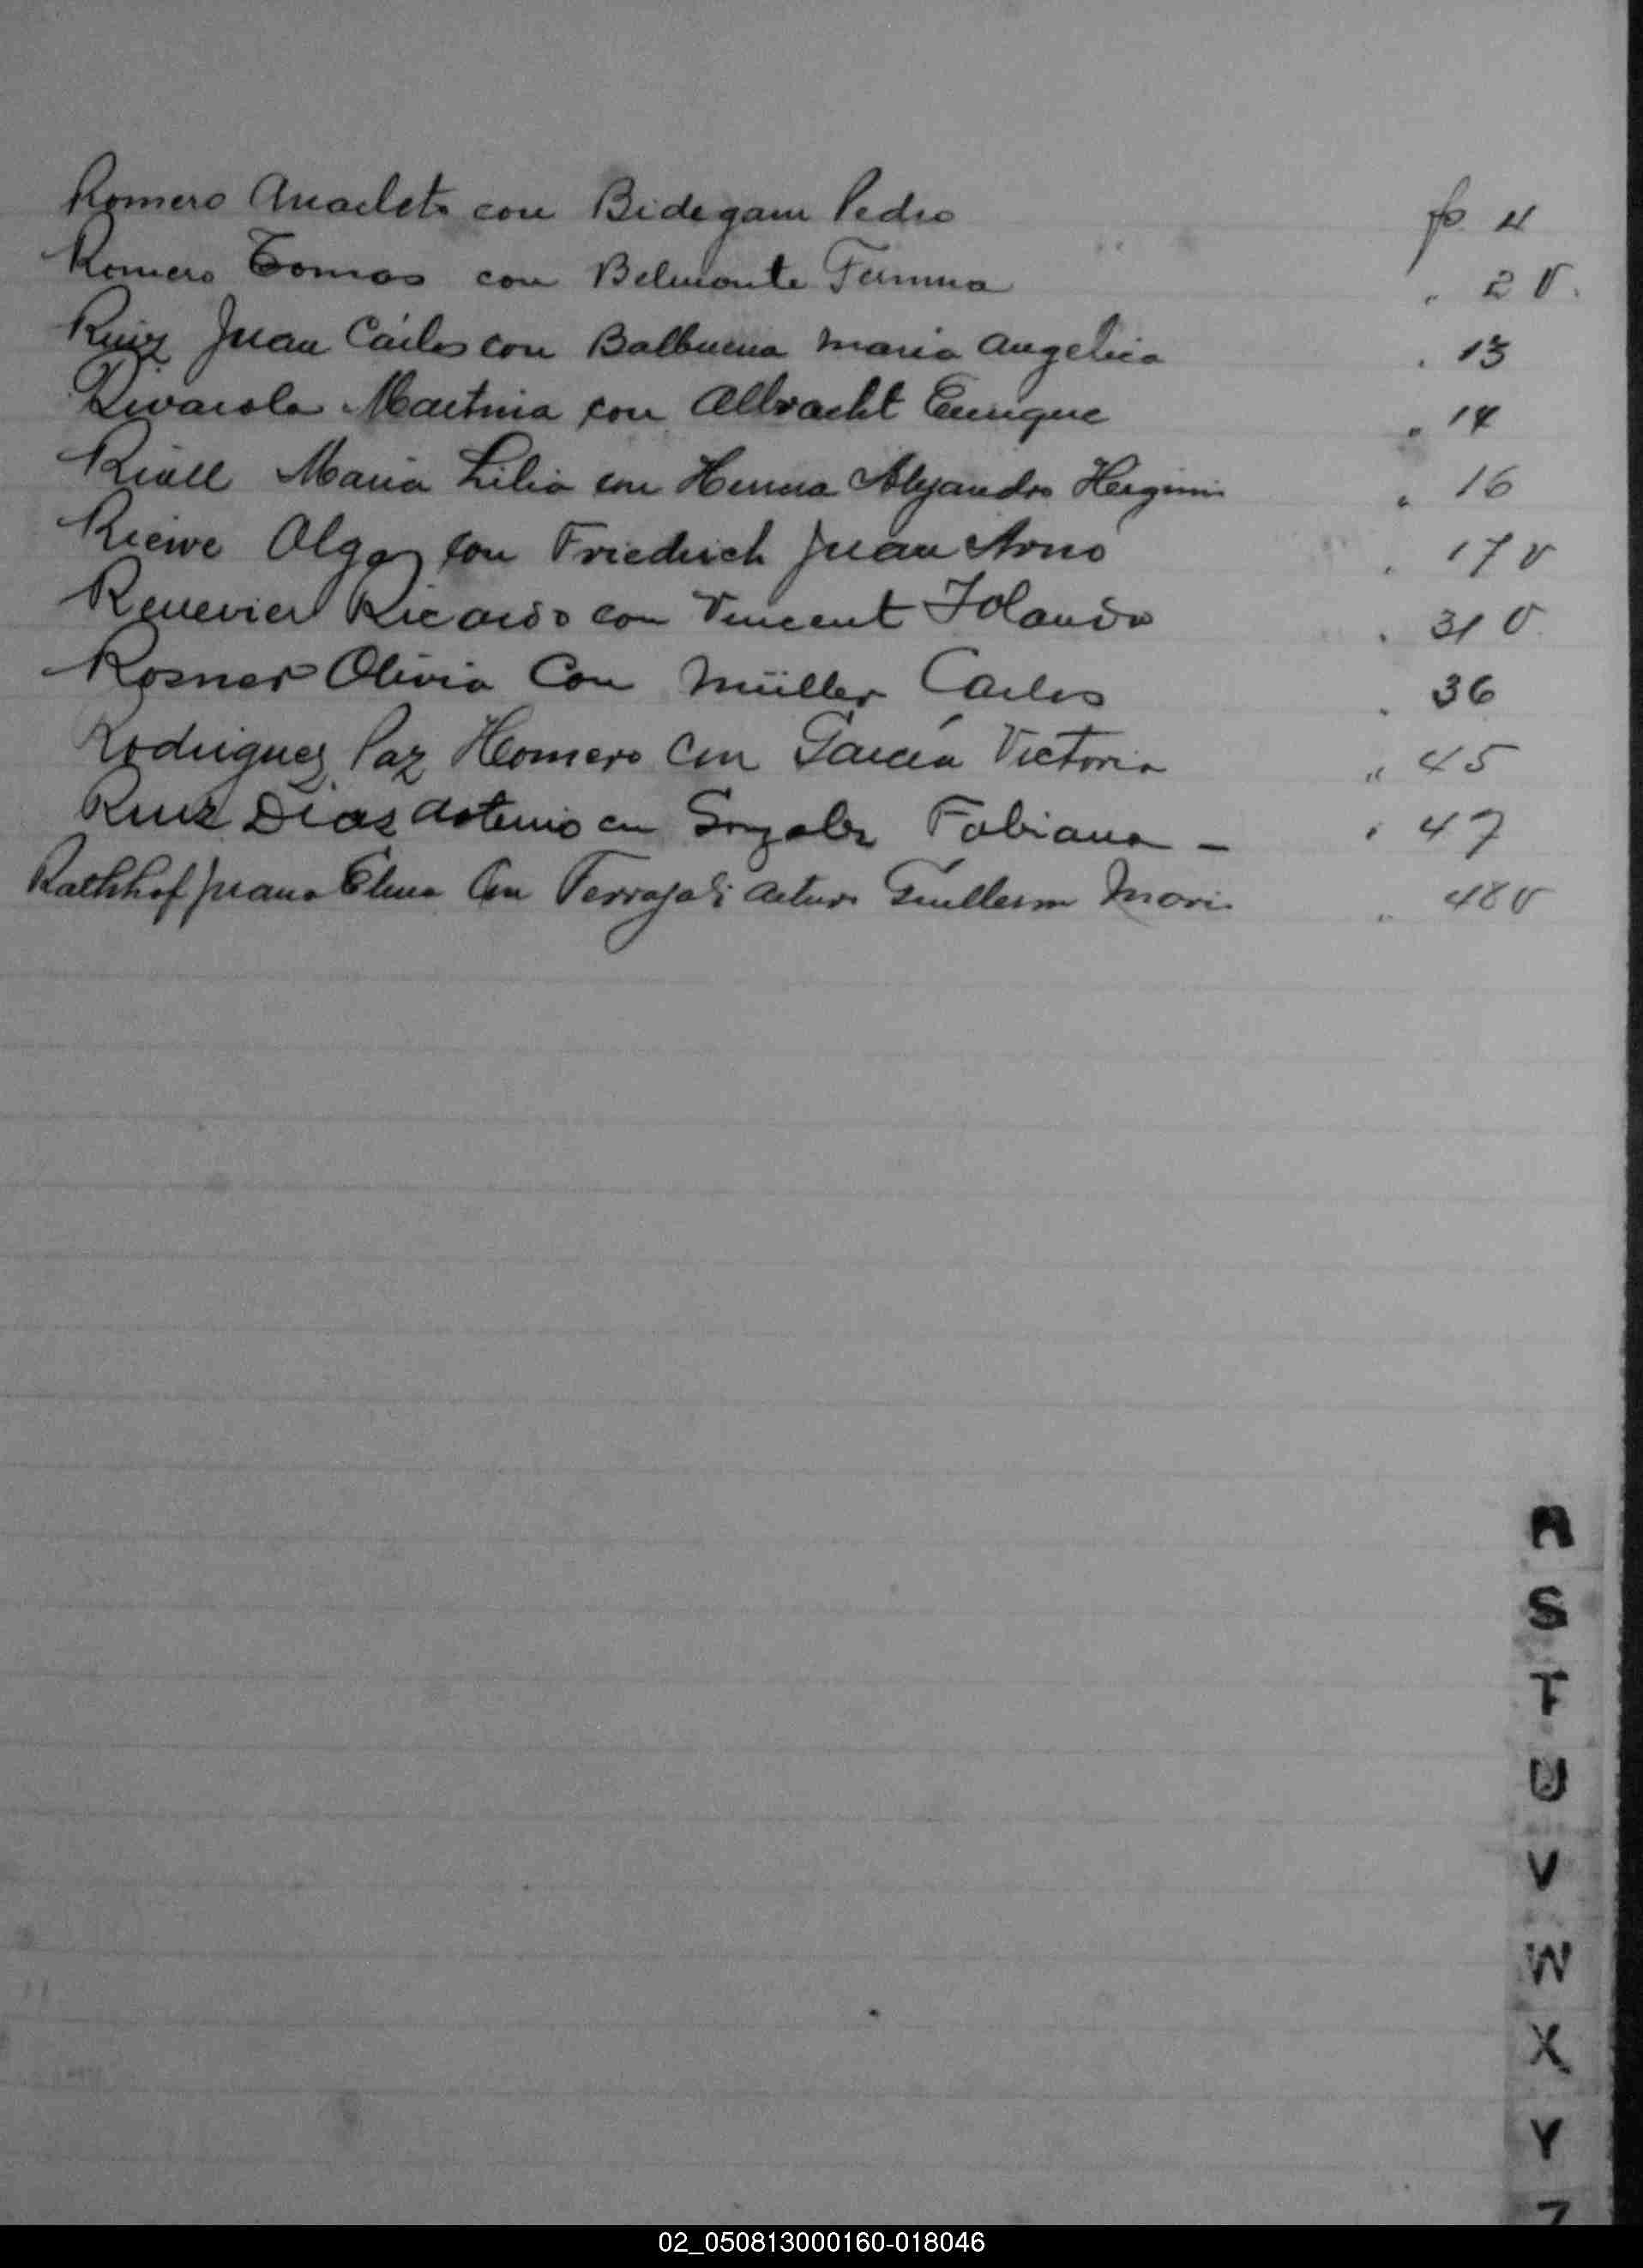 Romero Anacleta con Bidegain Pedro fo 4
Romero Tomas con Belmonte Fermina " 2 V.
Ruiz Juan Carlos con Balbuena Maria Angelica " 13
Rivarola Martina con Albracht Enrique " 14
Riall Maria Lilia con Alejandro Herginio " 16
Riewe Olga con Friedrich Juan Arno " 17 V
Renevier Ricardo con Vincent Iolanda " 31 V.
Rosner Olivia Con Müller Carlos " 36
Rodriguez Paz Homero Con García Victoria " 45
Ruiz Dias Antonio con Gonzalez Fabiana - " 47
Rathhof Juana Elena Con Arturo Guillermo Mori " 48 V
R
S
T
U
V
W
X
Y
Z
02_050813000160-018046